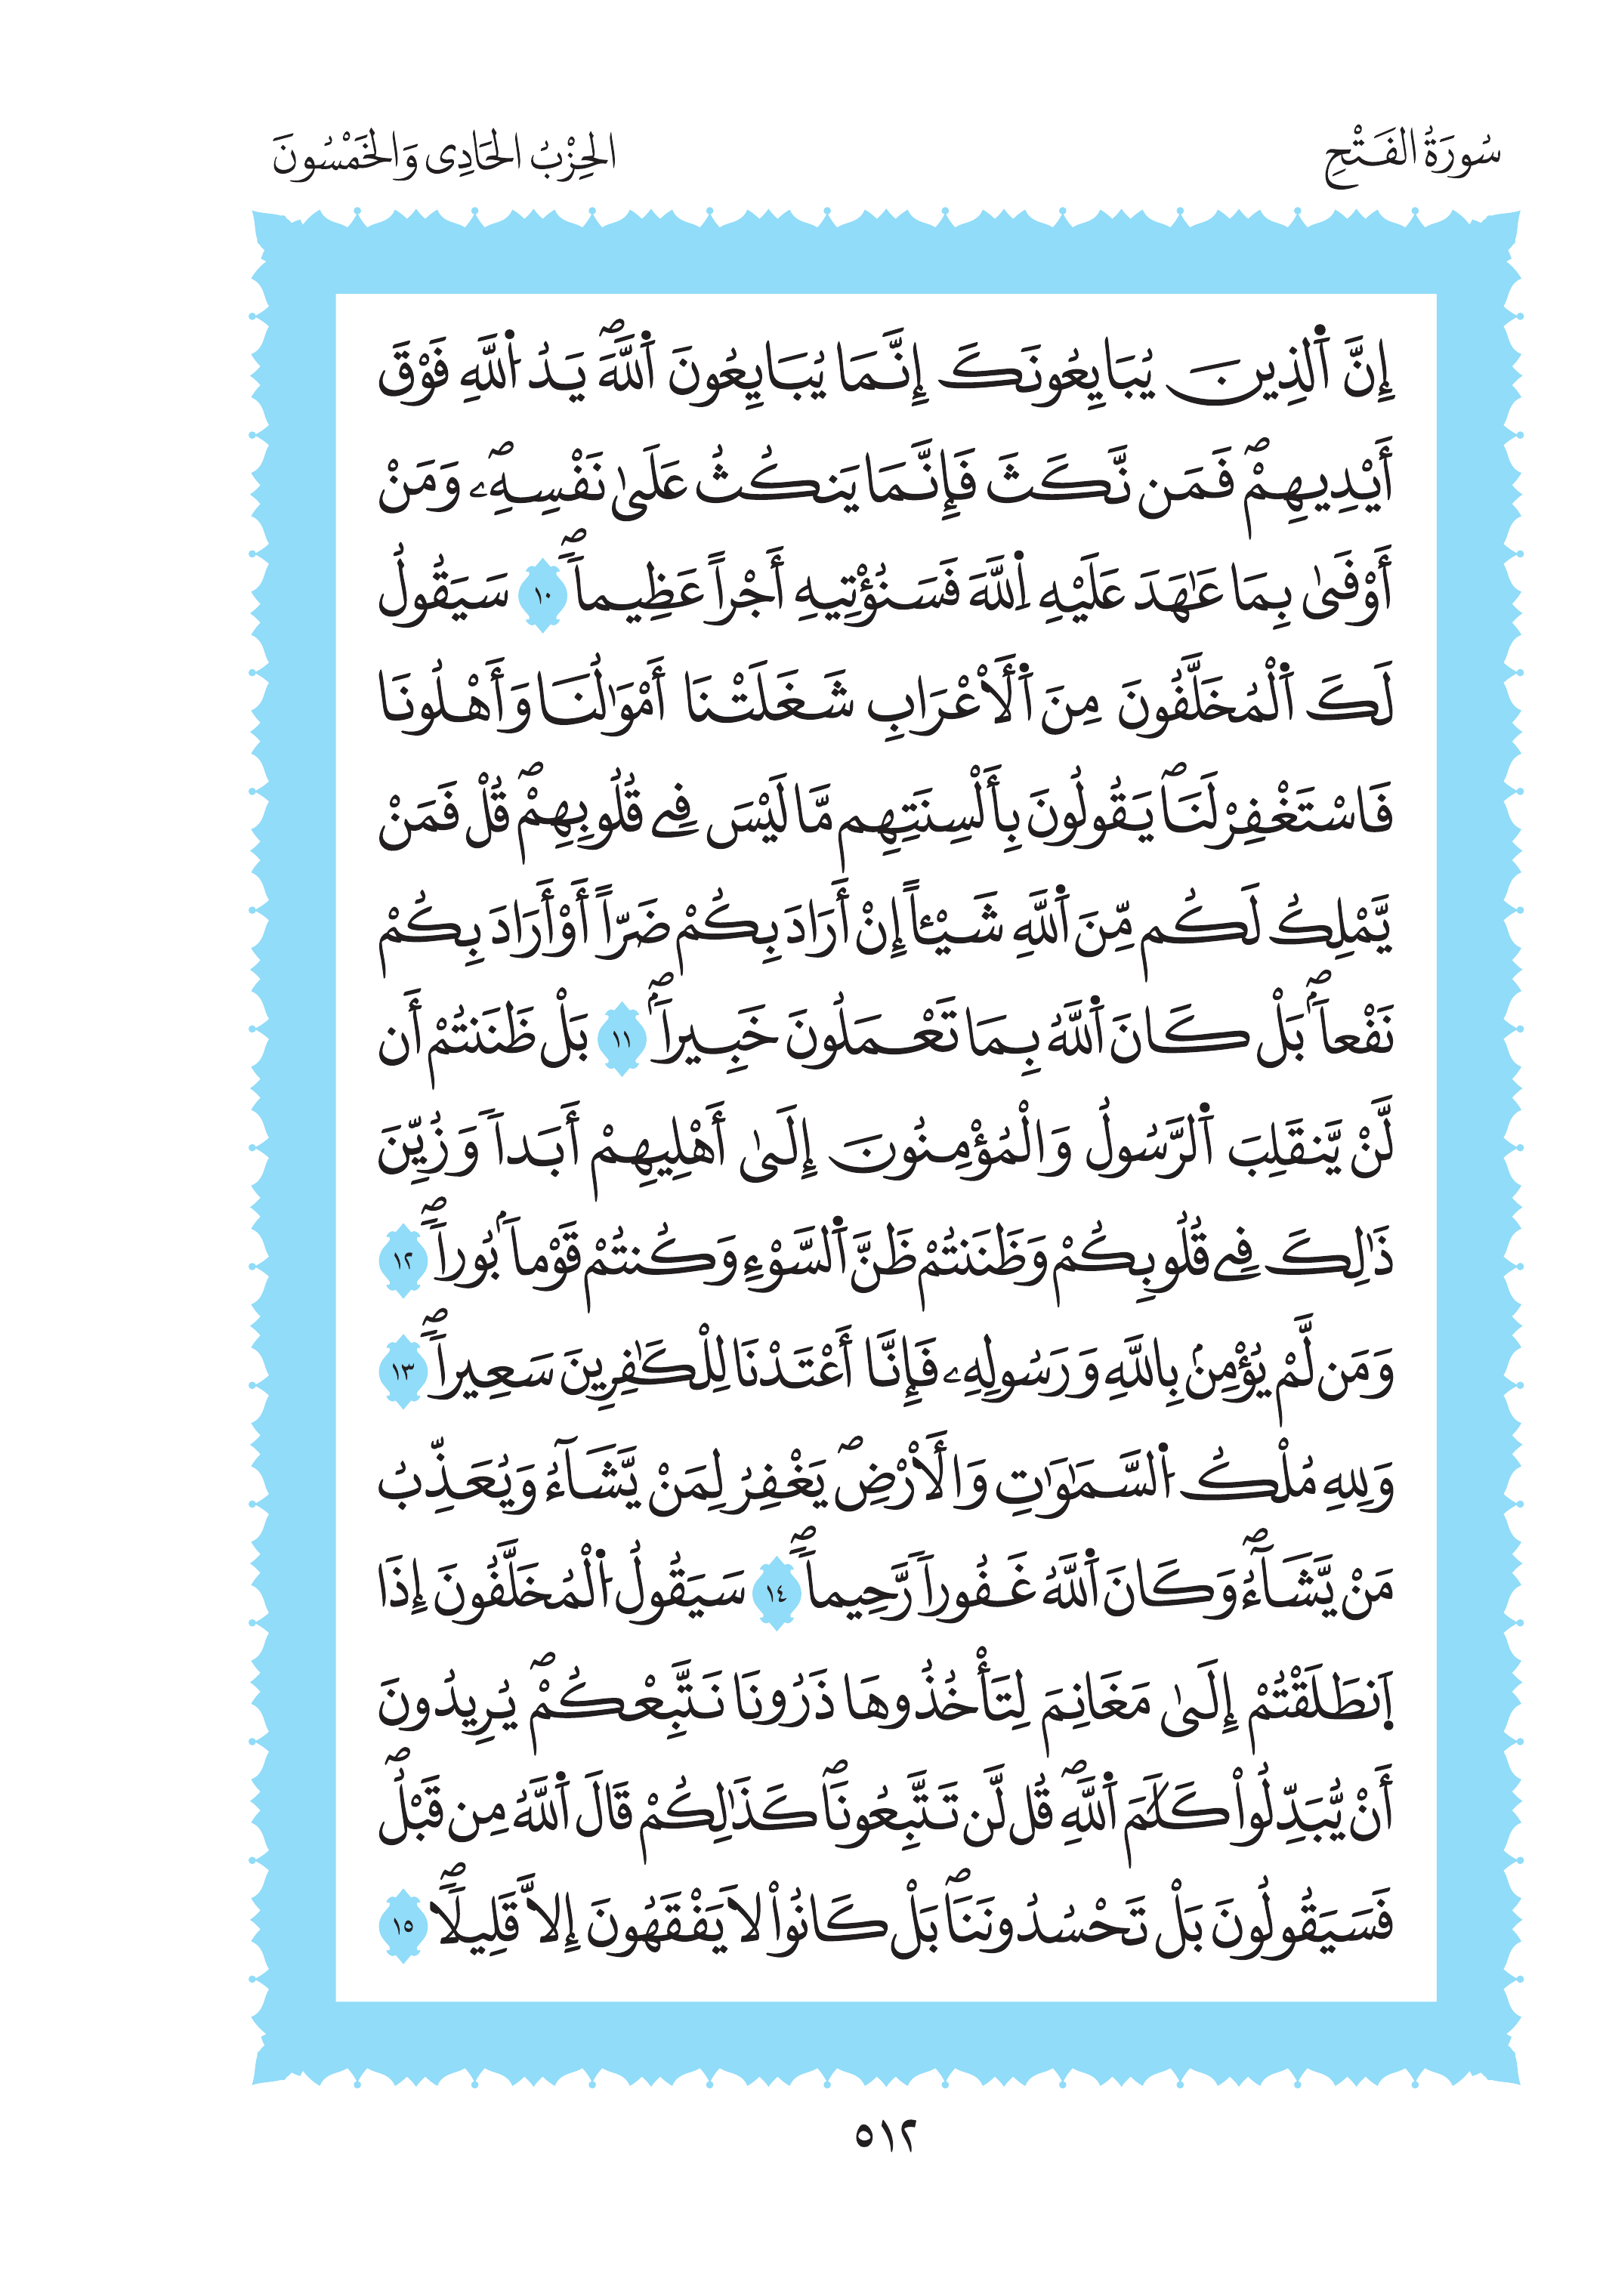 سُورَةُ الفَتْحِ
الحِزْبُ الحَادِى وَالخَمْسُونَ
إِنَّ اَ۬لذِينَ يُبَايِعُونَكَ إِنَّمَا يُبَايِعُونَ اَ۬للَّهَۖ يَدُ اُ۬للَّهِ فَوْقَ
أَيْدِيهِمْۖ فَمَن نَّكَثَ فَإِنَّمَا يَنكُثُ عَلَىٰ نَفْسِهِۦۖ وَمَنْ
أَوْفَىٰ بِمَا عَٰهَدَ عَلَيْهِ اِ۬للَّهَ فَسَنُؤْتِيهِ أَجْراً عَظِيماٗۖ ١٠ سَيَقُولُ
لَكَ اَ۬لْمُخَلَّفُونَ مِنَ اَ۬لْأَعْرَابِ شَغَلَتْنَا أَمْوَٰلُنَا وَأَهْلُونَا
فَاسْتَغْفِرْ لَنَاۖ يَقُولُونَ بِأَلْسِنَتِهِم مَّا لَيْسَ فِے قُلُوبِهِمْۖ قُلْ فَمَنْ
يَّمْلِكُ لَكُم مِّنَ اَ۬للَّهِ شَيْـٔاً إِنْ أَرَادَ بِكُمْ ضَرّاً أَوْ أَرَادَ بِكُمْ
نَفْعاَۢۖ بَلْ كَانَ اَ۬للَّهُ بِمَا تَعْمَلُونَ خَبِيراَۢۖ ١١ بَلْ ظَنَنتُمْ أَن
لَّنْ يَّنقَلِبَ اَ۬لرَّسُولُ وَالْمُؤْمِنُونَ إِلَىٰ أَهْلِيهِمْ أَبَداٗ وَزُيِّنَ
ذَٰلِكَ فِے قُلُوبِكُمْ وَظَنَنتُمْ ظَنَّ اَ۬لسَّوْءِ وَكُنتُمْ قَوْماَۢ بُوراٗۖ ١٢
وَمَن لَّمْ يُؤْمِنۢ بِاللَّهِ وَرَسُولِهِۦ فَإِنَّا أَعْتَدْنَا لِلْكَٰفِرِينَ سَعِيراٗۖ ١٣
وَلِلهِ مُلْكُ اُ۬لسَّمَٰوَٰتِ وَالْأَرْضِۖ يَغْفِرُ لِمَنْ يَّشَآءُ وَيُعَذِّبُ
مَنْ يَّشَآءُۖ وَكَانَ اَ۬للَّهُ غَفُوراٗ رَّحِيماٗۖ ١٤ سَيَقُولُ اُ۬لْمُخَلَّفُونَ إِذَا
اَ۪نطَلَقْتُمْ إِلَىٰ مَغَانِمَ لِتَأْخُذُوهَا ذَرُونَا نَتَّبِعْكُمْۖ يُرِيدُونَ
أَنْ يُّبَدِّلُواْ كَلَٰمَ اَ۬للَّهِۖ قُل لَّن تَتَّبِعُونَاۖ كَذَٰلِكُمْ قَالَ اَ۬للَّهُ مِن قَبْلُۖ
فَسَيَقُولُونَ بَلْ تَحْسُدُونَنَاۖ بَلْ كَانُواْ لَا يَفْقَهُونَ إِلَّا قَلِيلاٗۖ ١٥
٥١٢